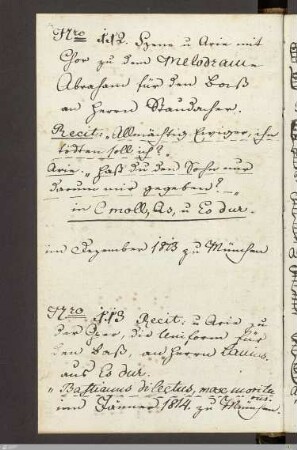 Nro 112. Scene u Arie mit
Chor zu dem Melodram
Abraham für den Bass
an Herrn Staudacher.
Recit: „Allmächtig Ewiger, ihn
tödten soll ich?
Arie. „Hast du den Sohn nur
darum mir gegeben? –
in C moll, As, u Es dur.
im Dezember 1813 zu München
Nro 113 Recit: u Arie zu
der Oper, die Uniform für
den Bass, an Herrn
aus Es dur.
„Bastianus dilectus, max
im Jänner 1814. zu München.